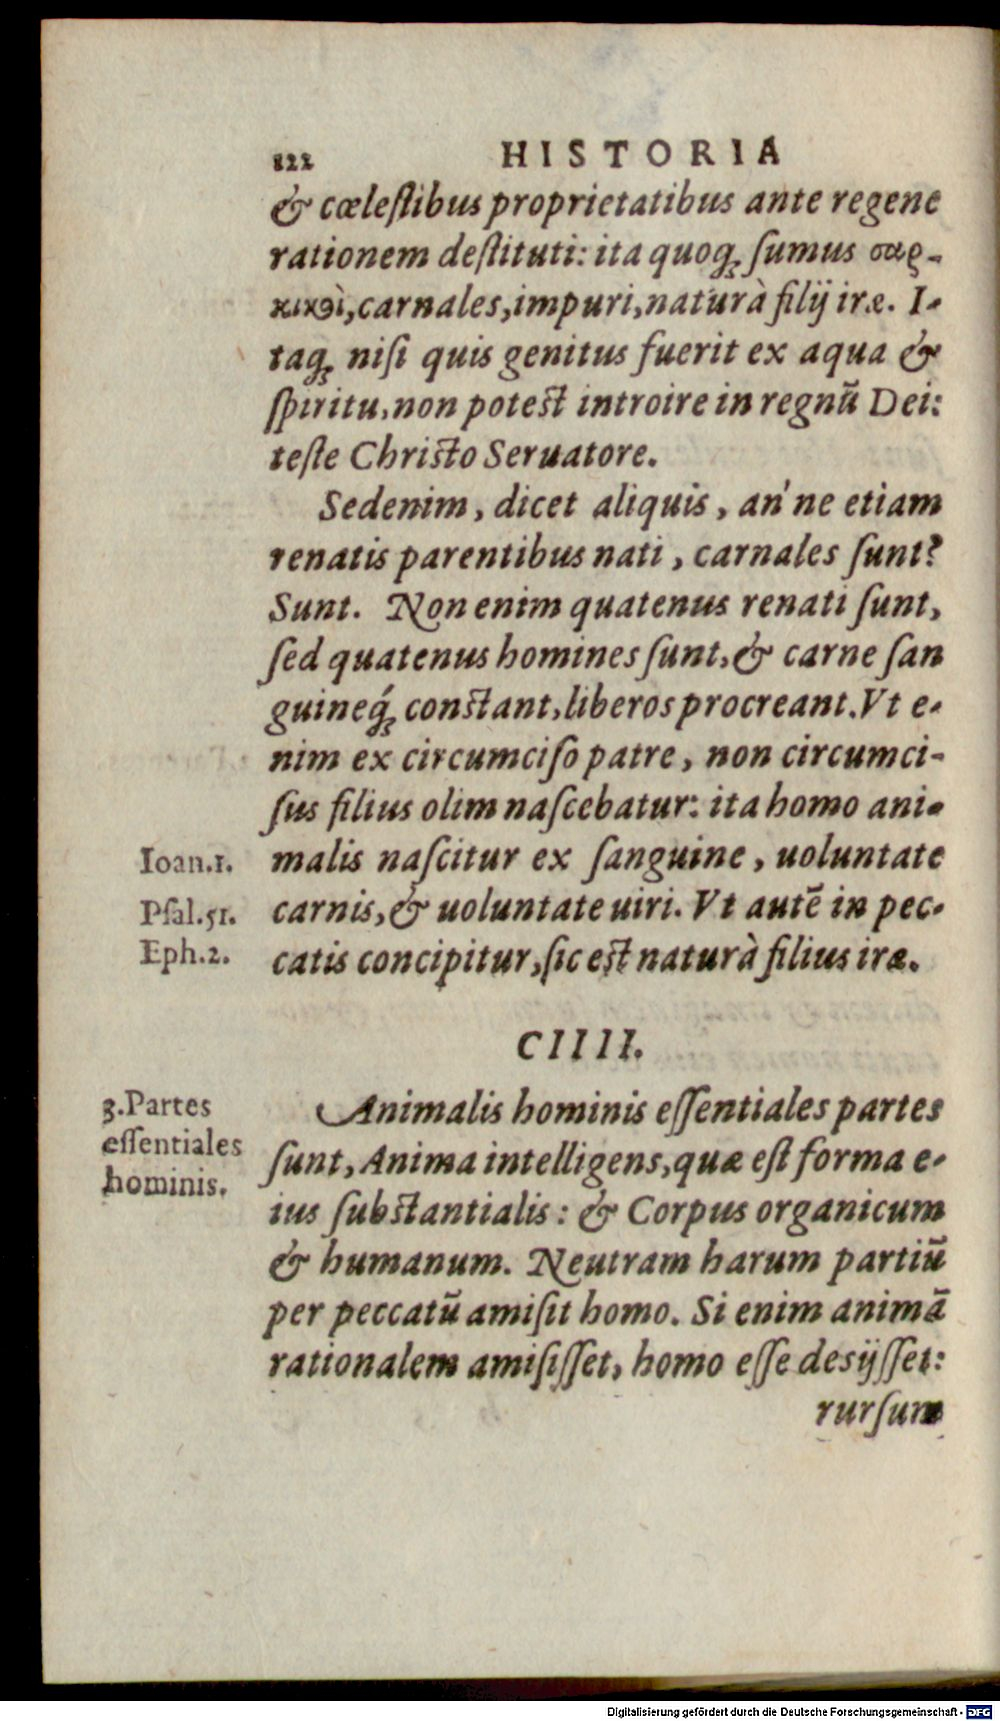 122 HISTORIA
& cœleſtibus proprietatibus ante regene
rationem deſtituti: ita quoq; ſumus σαρ-
κικοὶ, carnales, impuri, naturà filij iræ. I-
taq; niſi quis genitus fuerit ex aqua &
ſpiritu, non poteſt introire in regnũ Dei:
teſte Chriſto Seruatore.
Sedenim, dicet aliquis, an'ne etiam
renatis parentibus nati, carnales ſunt?
Sunt. Non enim quatenus renati ſunt,
ſed quatenus homines ſunt, & carne ſan
guineq́; conſtant, liberos procreant. Vt e-
nim ex circumciſo patre, non circumci-
ſus filius olim naſcebatur: ita homo ani-
Ioan.1. malis naſcitur ex ſanguine, uoluntate
Pſal.51. carnis, & uoluntate uiri. Vt autẽ in pec-
Eph.2. catis concipitur, ſic eſt naturà filius iræ.
CIIII.
3.Partes
eſſentiales
hominis.
Animalis hominis eſſentiales partes
ſunt, Anima intelligens, quæ eſt forma e-
ius ſubſtantialis: & Corpus organicum
& humanum. Neutram harum partiũ
per peccatũ amiſit homo. Si enim animã
rationalem amiſiſſet, homo eſſe desijſſet:
rurſum
Digitalisierung gefördert durch die Deutsche Forschungsgemeinschaft - DFG